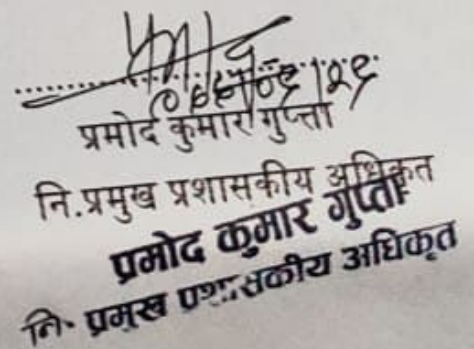 प्रमोद कुमार गुप्ता
नि.प्रमुख प्रशासकीय अधिकृत
प्रमोद कुमार गुप्ता
नि. प्रमुख प्रशासकीय अधिकृत